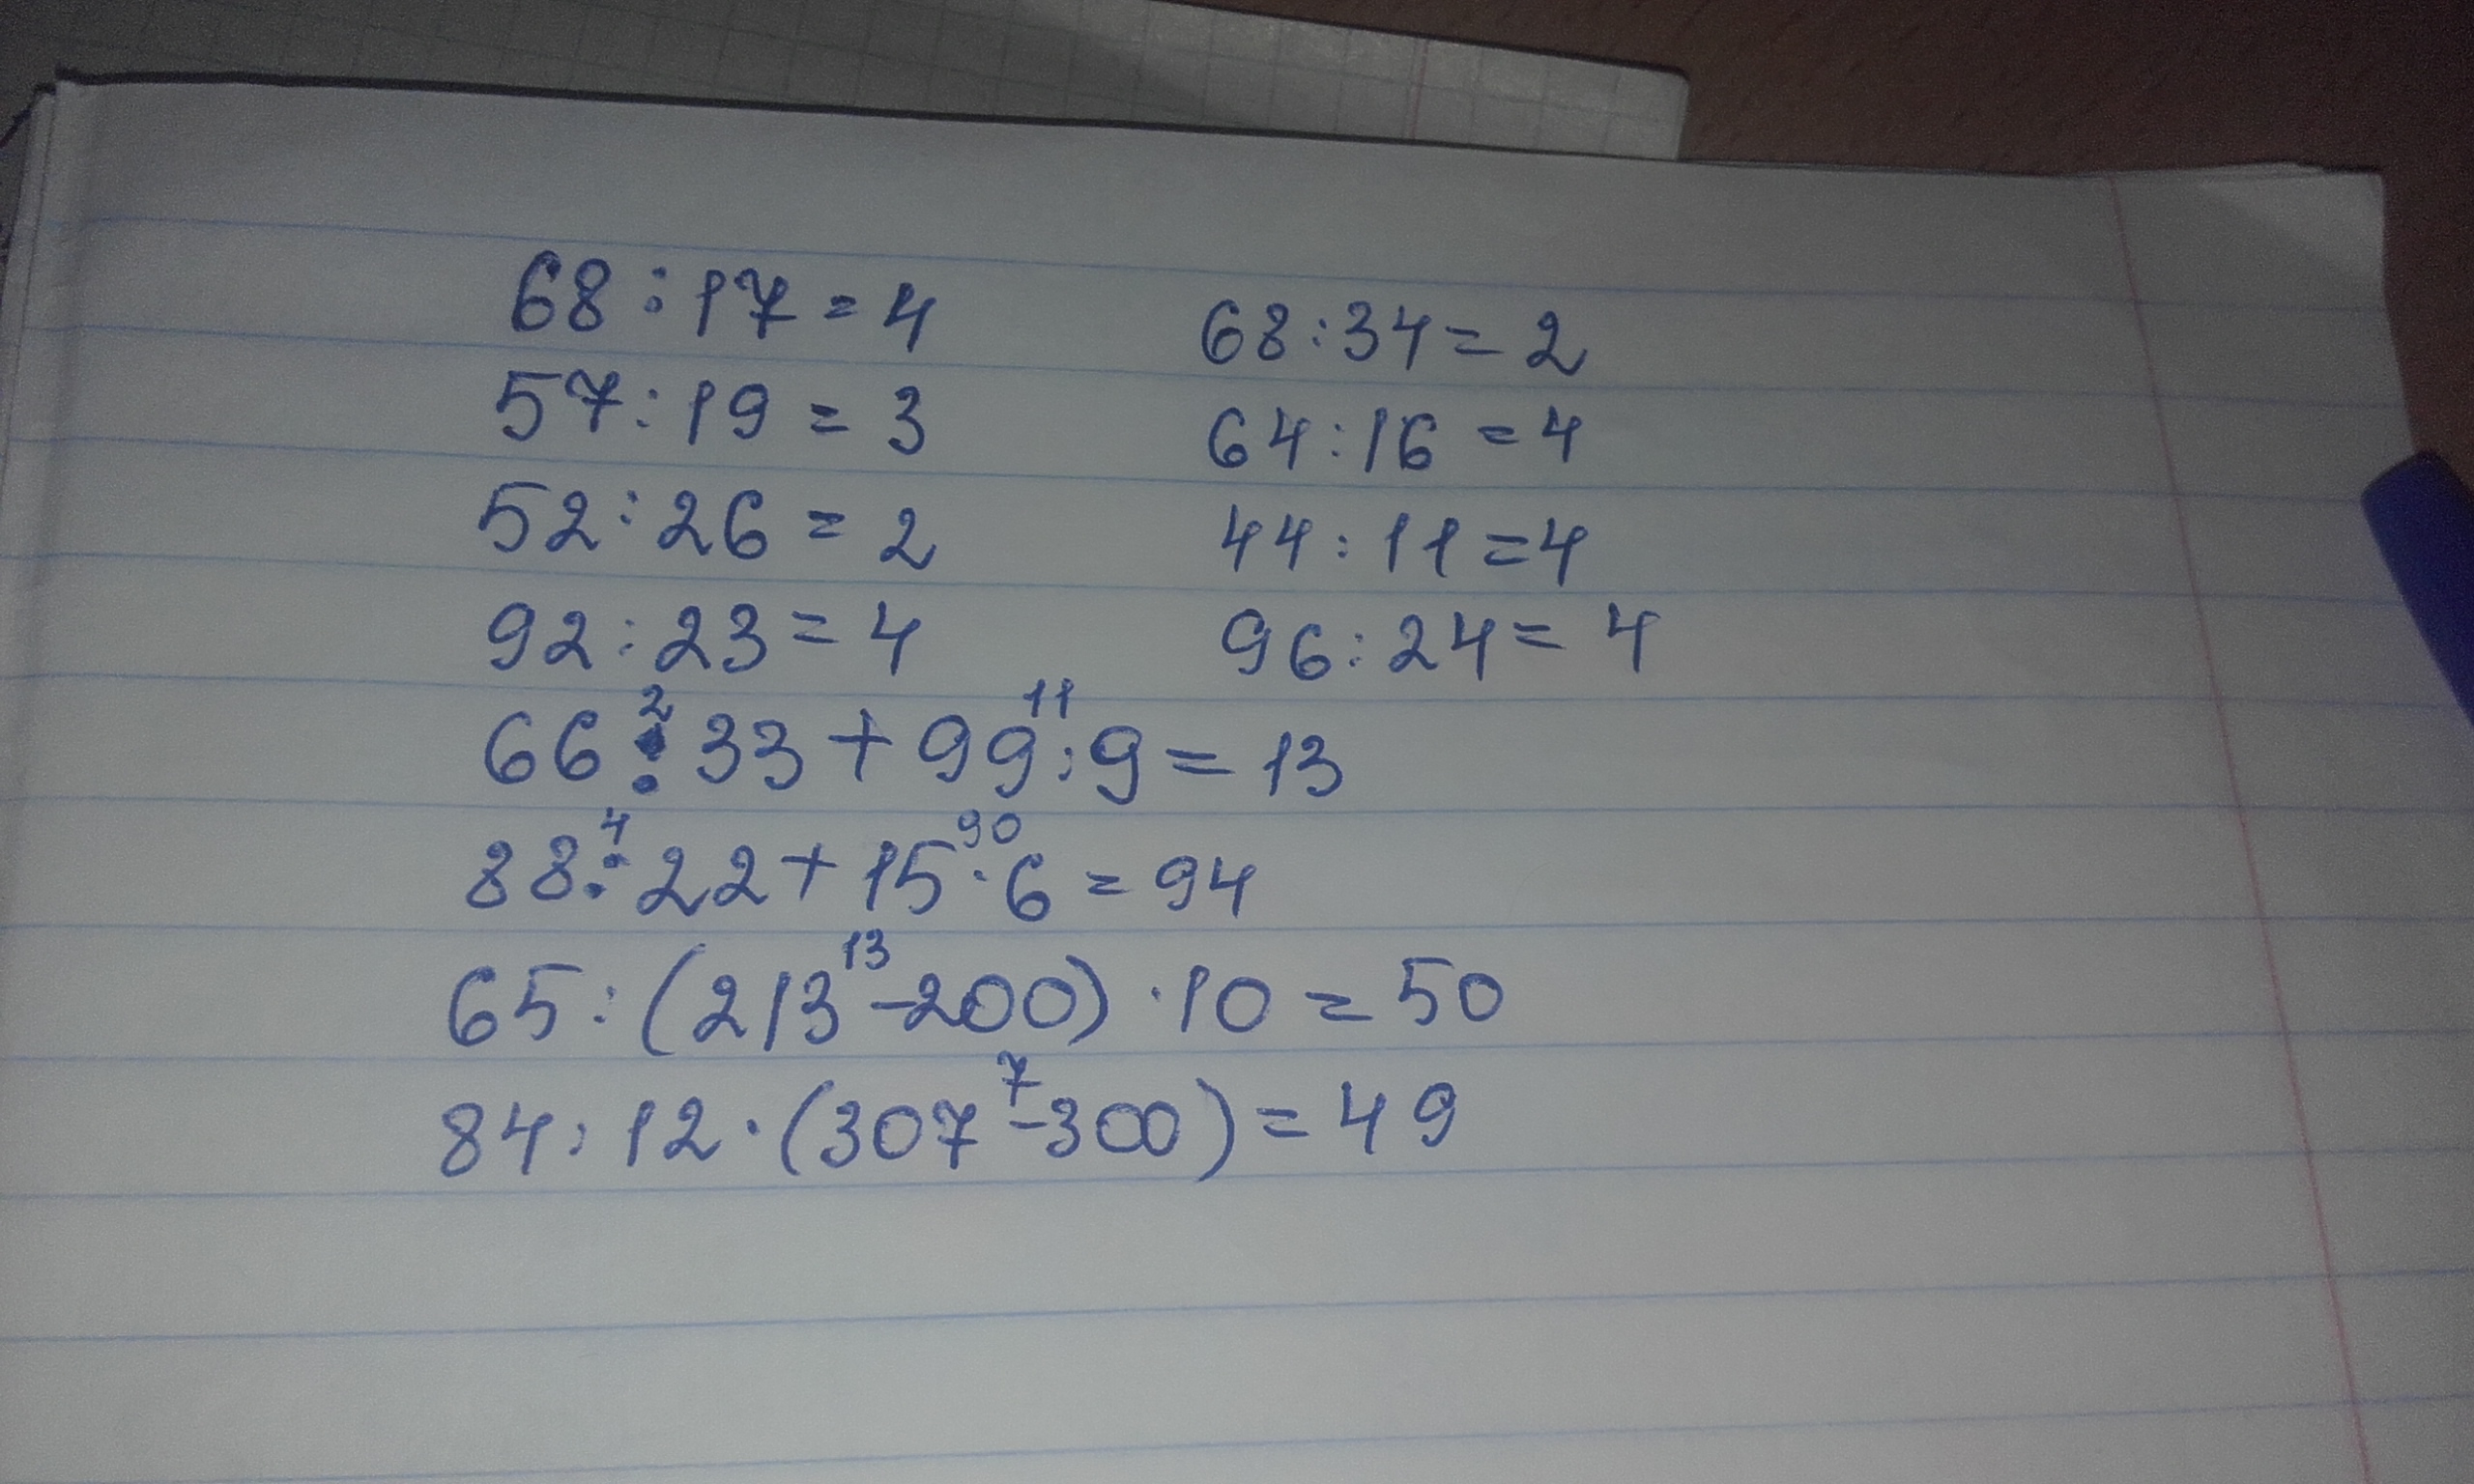 68:17=4 68:34=2
57:19=3 64:16=4
52:26=2 44:11=4
92:23=4 96:24=4
2 11
66:33+99:9=13
4 90
88:22+15·6=94
13
65:(213-200)·10=50
7
84:12·(307-300)=49